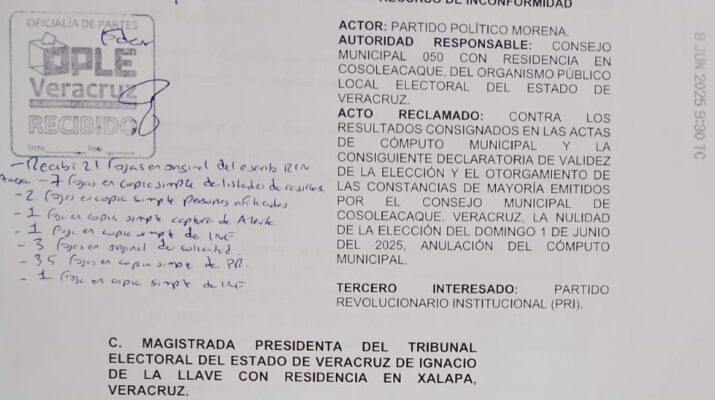 RECURSO DE INCONFORMIDAD
OFICIALÍA DE PARTES
OPLE
Veracruz
RECIBIDO
Fecha Hora
8 JUN 2025 9:30 TC
ACTOR: PARTIDO POLÍTICO MORENA.
AUTORIDAD RESPONSABLE: CONSEJO
MUNICIPAL 050 CON RESIDENCIA EN
COSOLEACAQUE, DEL ORGANISMO PÚBLICO
LOCAL ELECTORAL DEL ESTADO DE
VERACRUZ.
ACTO RECLAMADO: CONTRA LOS
RESULTADOS CONSIGNADOS EN LAS ACTAS
DE CÓMPUTO MUNICIPAL Y LA
CONSIGUIENTE DECLARATORIA DE VALIDEZ
DE LA ELECCIÓN Y EL OTORGAMIENTO DE
LAS CONSTANCIAS DE MAYORÍA EMITIDOS
POR EL CONSEJO MUNICIPAL DE
COSOLEACAQUE, VERACRUZ, LA NULIDAD DE
LA ELECCIÓN DEL DOMINGO 1 DE JUNIO
DEL 2025, ANULACIÓN DEL CÓMPUTO
MUNICIPAL.
TERCERO INTERESADO: PARTIDO
REVOLUCIONARIO INSTITUCIONAL (PRI).
- Recibí 21 fojas en original del escrito RIN
Anexa - 7 fojas en copia simple de listados de casillas
- 2 fojas en copia simple personas afiliadas
- 1 foja en copia simple captura de
- 1 foja en copia simple de INE
- 3 fojas en original de solicitud
- 35 fojas en copia simple de
- 1 foja en copia simple de INE
C. MAGISTRADA PRESIDENTA DEL TRIBUNAL
ELECTORAL DEL ESTADO DE VERACRUZ DE IGNACIO
DE LA LLAVE CON RESIDENCIA EN XALAPA,
VERACRUZ.